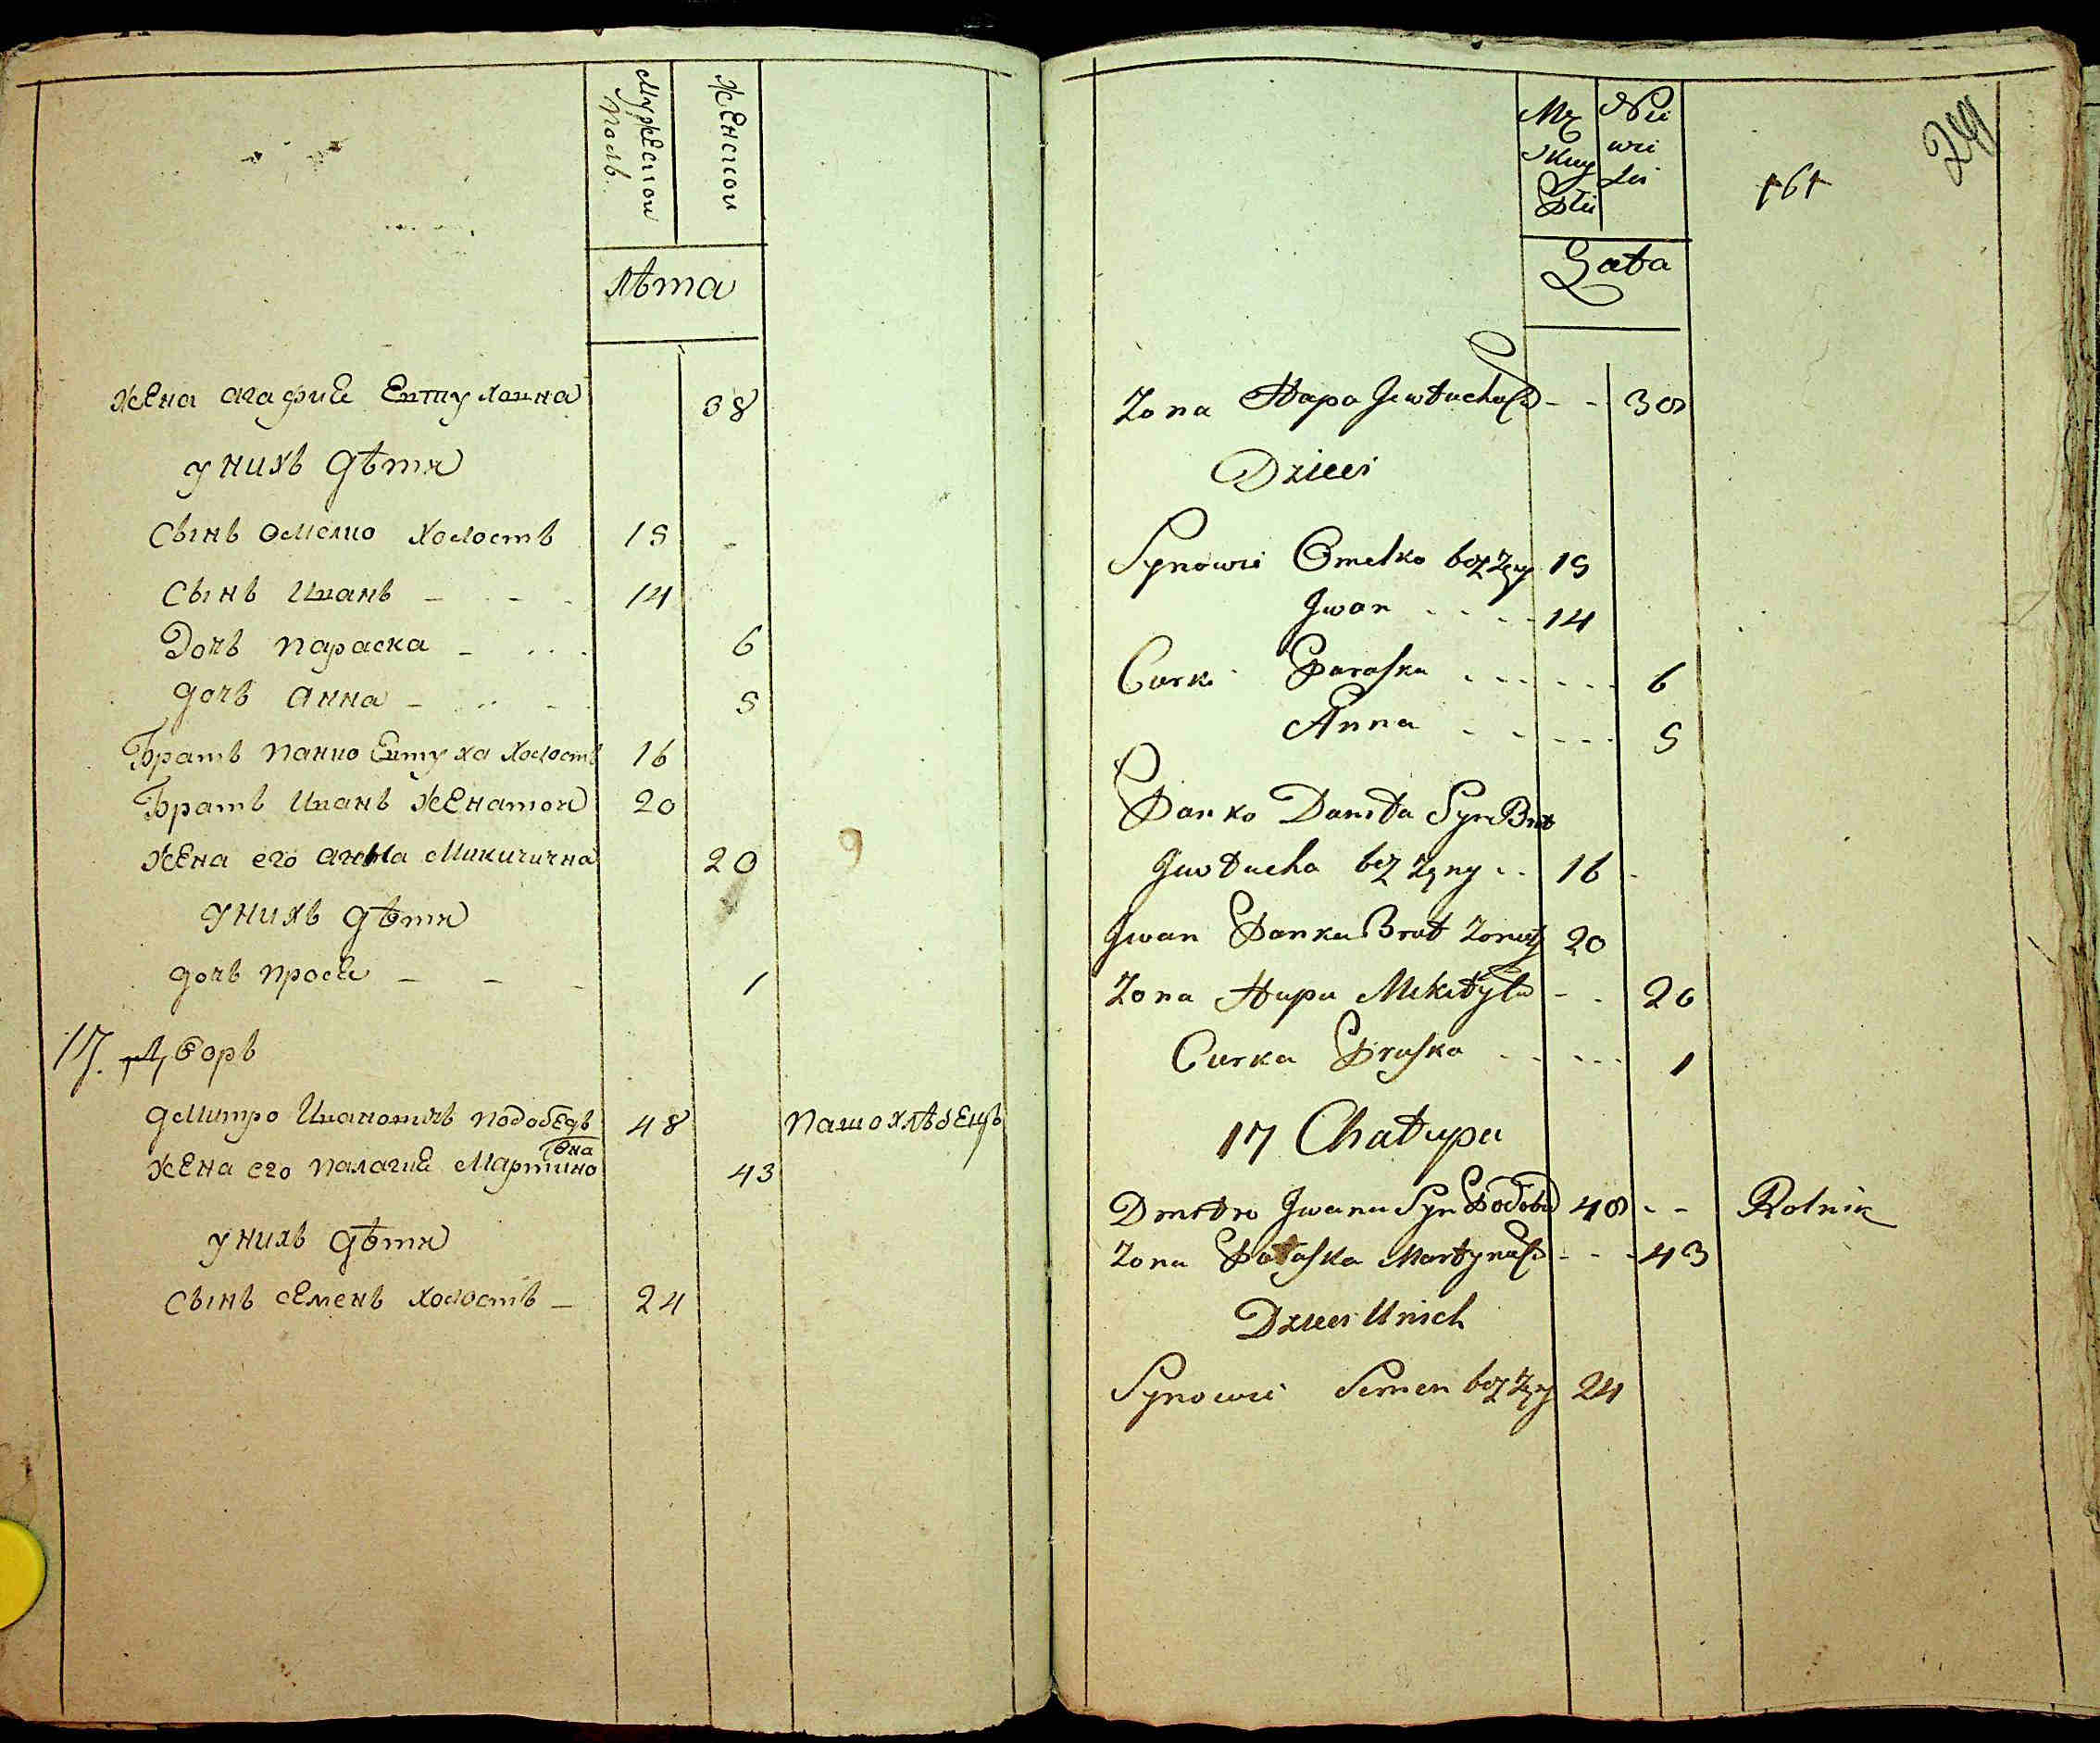 Мужескои
Полъ.
Женскои
лѣта
жена агафиѣ Евтуховна 38
у нихъ дѣти
Сынъ омелко холостъ 15
Сынъ Иванъ - - - 14
Дочь параска - ... 6
дочь анна - .. - 5
Братъ панко Евтуха холостъ 16
Братъ Иванъ женатои 20
жена его анна Микитична 20
у нихъ дѣти
дочь просѣ - - - 1
17. Дворъ
дмитро Ивановичь подобедъ 48 пашохлѣбецъ
жена его палагиѣ Мартиновна 43
у нихъ дѣти
Сынъ семенъ холостъ - 24
Mę
skey
Płci
Nie
wie
sci
Lata
161
241
Zona Hapa Jewtuchа - - 38
Dzieci
Synowie Omelko bez Zny 15
Jwan - - - - 14
Curki Paraska - - - - - - 6
Anna - - - - - 5
Panko Danita Syn Brat
Jewtucha bez zeny - - 16
Jwan Panka Brat Zonaty 20
Zona Hapa Mikityta - - 20
Curka Praska - - - - - 1
17 Chatupa
Dmitro Jwana Syn Podobid 48 - - Rolnik
Zona Pałaska Martyna - - - 43
Dzieci Unich
Synowie Semen bez Zny 24